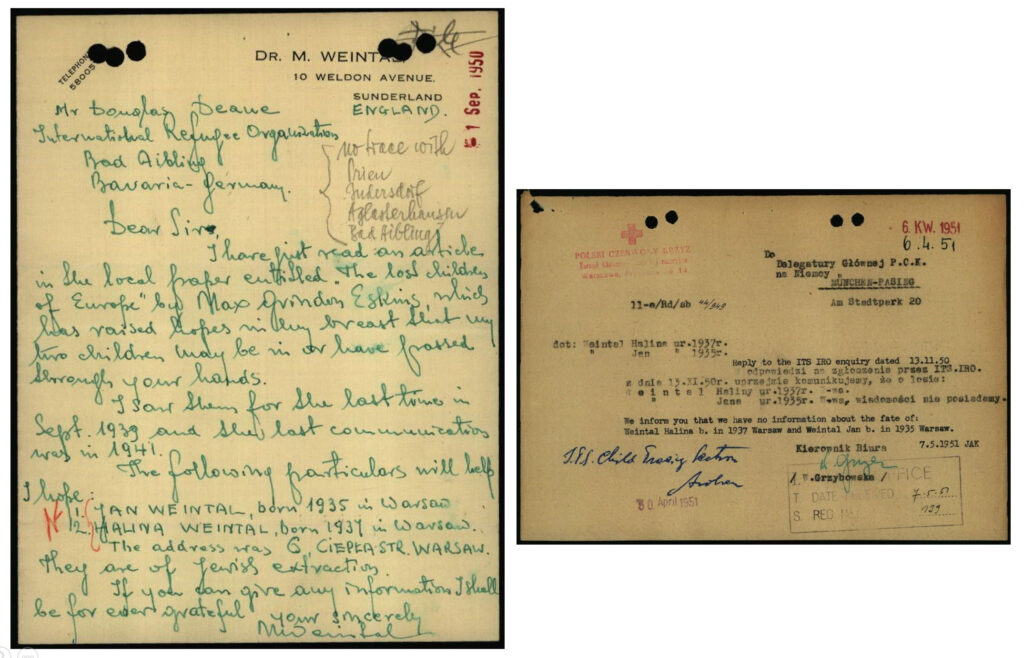 TELEPHONE
58005
DR. M. WEINTAL
10 WELDON AVENUE.
SUNDERLAND
ENGLAND.
1 Sep. 1950
Mr Douglas Deane
International Refugee Organisation
Bad Aibling
Bavaria - Germany.
no trace with
Prien
Indersdorf
Aglasterhausen
Bad Aibling
Dear Sir,
I have just read an article
in the local paper entitled "The lost children
of Europe" by Max Grindon Esking, which
has raised hopes in my breast that my
two children may be in or have passed
through your hands.
I saw them for the last time in
Sept. 1939 and the last communication
was in 1941.
The following particulars will help
I hope:
1. JAN WEINTAL, born 1935 in Warsaw
2. HALINA WEINTAL, born 1937 in Warsaw.
The address was 6, CIEPŁA STR. WARSAW.
They are of Jewish extraction
If you can give any information I shall
be for ever grateful
your sincerely
MWeintal
POLSKI CZERWONY KRZYŻ
6. KW. 1951
6.4.51
Do
Delegatury Głównej P.C.K.
na Niemcy
MÜNCHEN-PASIEG
Am Stadtperk 20
11-e/Rd/sb 44/343
dot: Weintal Halina ur.1937r.
" Jan " 1935r.
Reply to the ITS IRO enquiry dated 13.11.50
odpowiedzi na zgłoszenie przez ITS.IRO.
z dnia 13.XI.50r. uprzejmie komunikujemy, że o losie:
Weintal Haliny ur.1937r. W-wa.
" Jana ur.1935r. W-wa, wiadomości nie posiadamy.
We inform you that we have no information about the fate of:
Weintal Halina b. in 1937 Warsaw and Weintal Jan b. in 1935 Warsaw.
Kierownik Biura
7.5.1951 JAK
I.T.S. Child Tracing Section
Arolsen
/ W.Grzybowska /
30 April 1951
OFFICE
T. DATE RECEIVED 7.5.51
S. REG No. 139